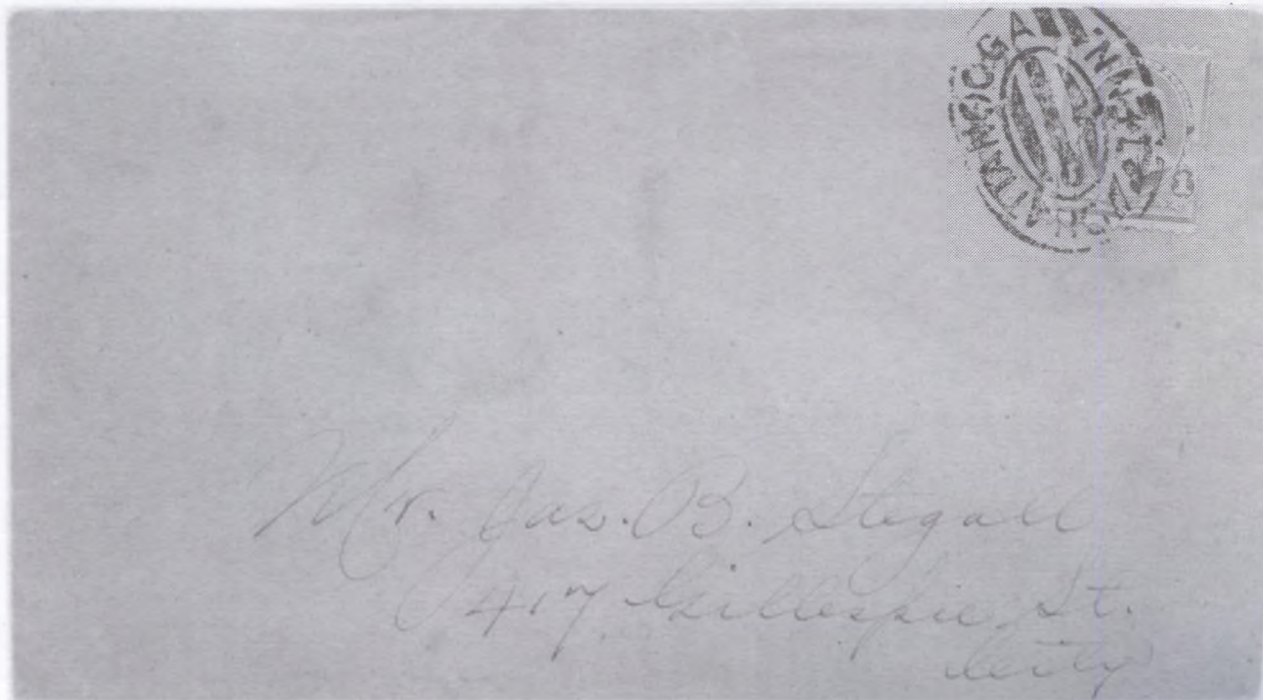 CHATTANOOGA TENN.
1
Mr. Jas. B. Stegall
417 Gillespie St.
City